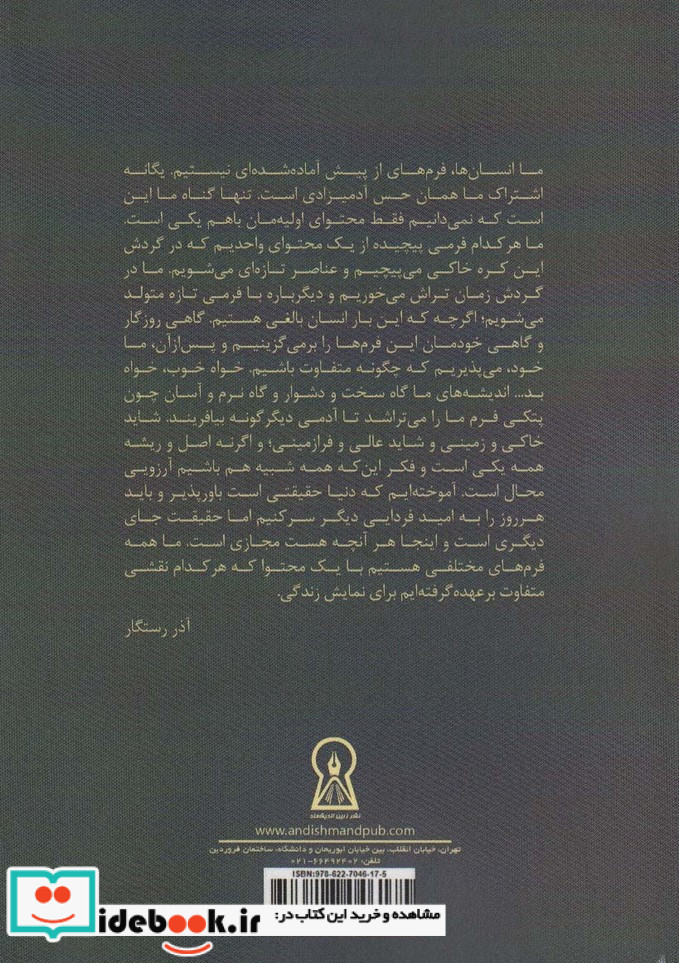 ما انسان‌ها، فرم‌های از پیش آماده‌شده‌ای نیستیم. یگانه
اشتراک ما همان حس آدمیزادی است. تنها گناه ما این
است که نمی‌دانیم فقط محتوای اولیه‌مان باهم یکی است.
ما هرکدام فرمی پیچیده از یک محتوای واحدیم که در گردش
این کره خاکی می‌پیچیم و عناصر تازه‌ای می‌شویم. ما در
گردش زمان تراش می‌خوریم و دیگرباره با فرمی تازه متولد
می‌شویم؛ اگرچه که این بار انسان بالغی هستیم. گاهی روزگار
و گاهی خودمان این فرم‌ها را برمی‌گزینیم و پس‌ازآن، ما
خود، می‌پذیریم که چگونه متفاوت باشیم. خواه خوب، خواه
بد... اندیشه‌های ما گاه سخت و دشوار و گاه نرم و آسان چون
پتکی فرم ما را می‌تراشد تا آدمی دیگرگونه بیافریند. شاید
خاکی و زمینی و شاید عالی و فرازمینی؛ و اگرنه اصل و ریشه
همه یکی است و فکر این‌که همه شبیه هم باشیم آرزویی
محال است. آموخته‌ایم که دنیا حقیقتی است باورپذیر و باید
هرروز را به امید فردایی دیگر سرکنیم اما حقیقت جای
دیگری است و اینجا هر آنچه هست مجازی است. ما همه
فرم‌های مختلفی هستیم با یک محتوا که هرکدام نقشی
متفاوت برعهده‌گرفته‌ایم برای نمایش زندگی.
آذر رستگار
نشر زرین اندیشمند
www.andishmandpub.com
تهران، خیابان انقلاب، بین خیابان ابوریحان و دانشگاه، ساختمان فروردین
تلفن: ۶۶۴۹۲۴۰۲-۰۲۱
ISBN:978-622-7046-17-5
idebook.ir
مشاهده و خرید این کتاب در: